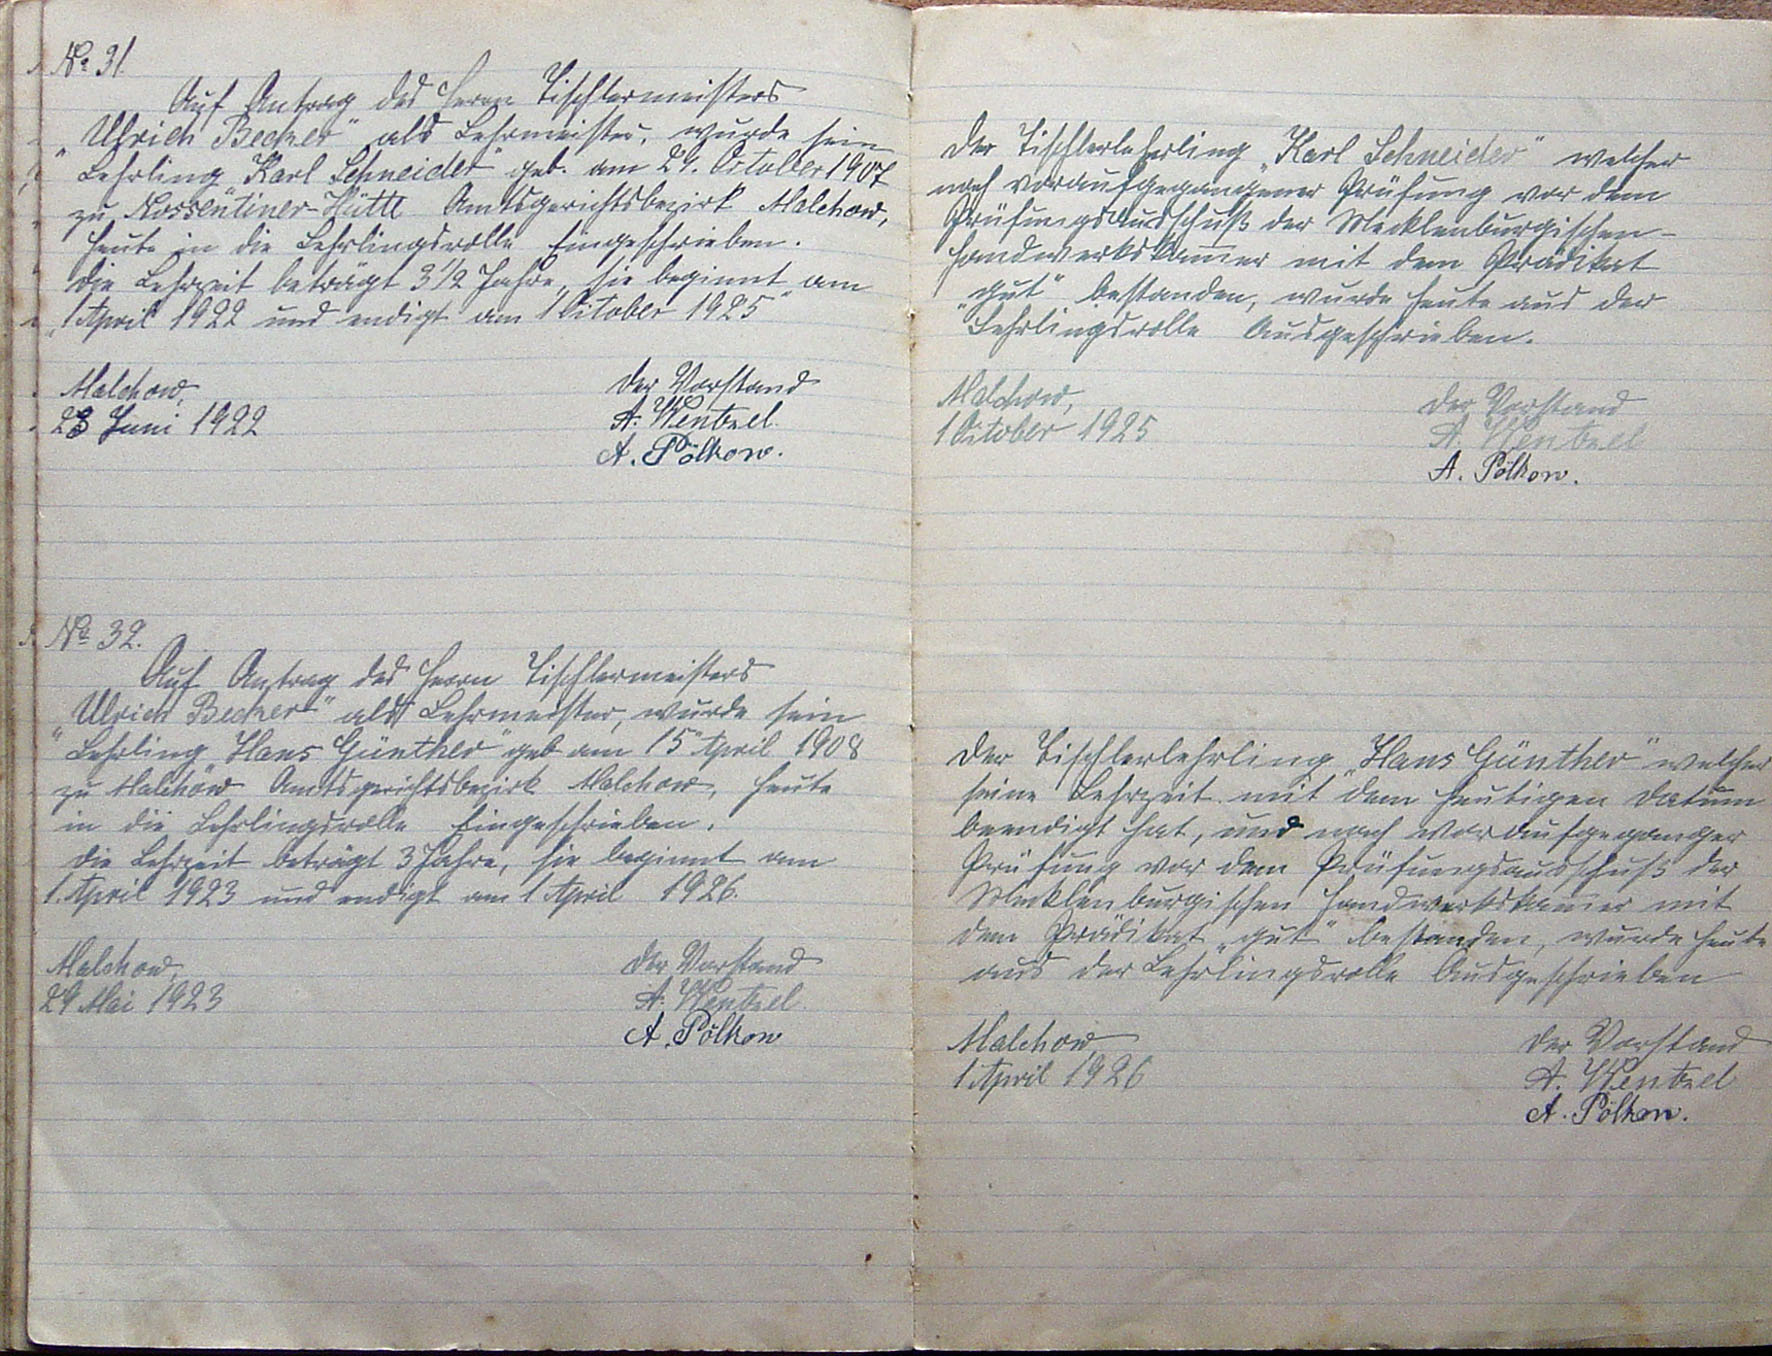 No 31.
Auf Antrag des Herrn Tischlermeisters
„Ulrich Becker" als Lehrmeister, wurde sein
Lehrling Karl Schneider" geb. am 24. October 1907
zu Nossentiner-Hütte Amtsgerichtsbezirk Malchow,
heute in die Lehrlingsrolle Eingeschrieben.
Die Lehrzeit beträgt 3 1/2 Jahre, sie beginnt am
„1 April 1922 und endigt am 1 October 1925"
Malchow,
23 Juni 1922
Der Vorstand
A. Wentzel.
A. Pölkow.
No 32.
Auf Antrag des Herrn Tischlermeisters
„Ulrich Becker" als Lehrmeister, wurde sein
Lehrling „Hans Günther" geb am 15 April 1908
zu Malchow Amtsgerichtsbezirk Malchow, heute
in die Lehrlingsrolle Eingeschrieben.
Die Lehrzeit beträgt 3 Jahre, sie beginnt am
1. April 1923 und endigt am 1 April 1926.
Malchow,
29 Mai 1923
Der Vorstand
A. Wentzel.
A. Pölkow
Der Tischlerlehrling „Karl Schneider" welcher
nach voraufgegangener Prüfung vor dem
Prüfungsausschuß der Mecklenburgischen-
Handwerkskam̅er mit dem Prädikat
„gut" bestanden, wurde heute aus der
Lehrlingsrolle Ausgeschrieben.
Malchow,
1 October 1925
Der Vorstand
A. Wentzel
A. Pölkow.
Der Tischlerlehrling „Hans Günther" welcher
seine Lehrzeit mit dem heutigen Datum
beendigt hat, und nach voraufgeganger
Prüfung vor dem Prüfungsausschuß der
Mecklenburgischen Handwerkskam̅er mit
dem Prädikat „gut" bestanden, wurde heute
aus der Lehrlingsrolle Ausgeschrieben
Malchow
1 April 1926
Der Vorstand
A. Wentzel
A. Pölkow.